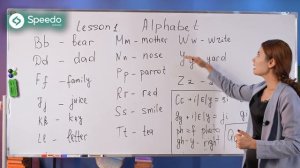 Speedo
Lesson 1 Alphabet
Bb - bear
Dd - dad
Ff - family
Jj - juice
Kk - key
Ll - letter
Mm - mother
Nn - nose
Pp - parrot
Rr - red
Ss - smile
Tt - tea
Ww - write
Yy - yard
Zz -
Cc + i/e/y =
Gg + i/e/y =
ph = f photo